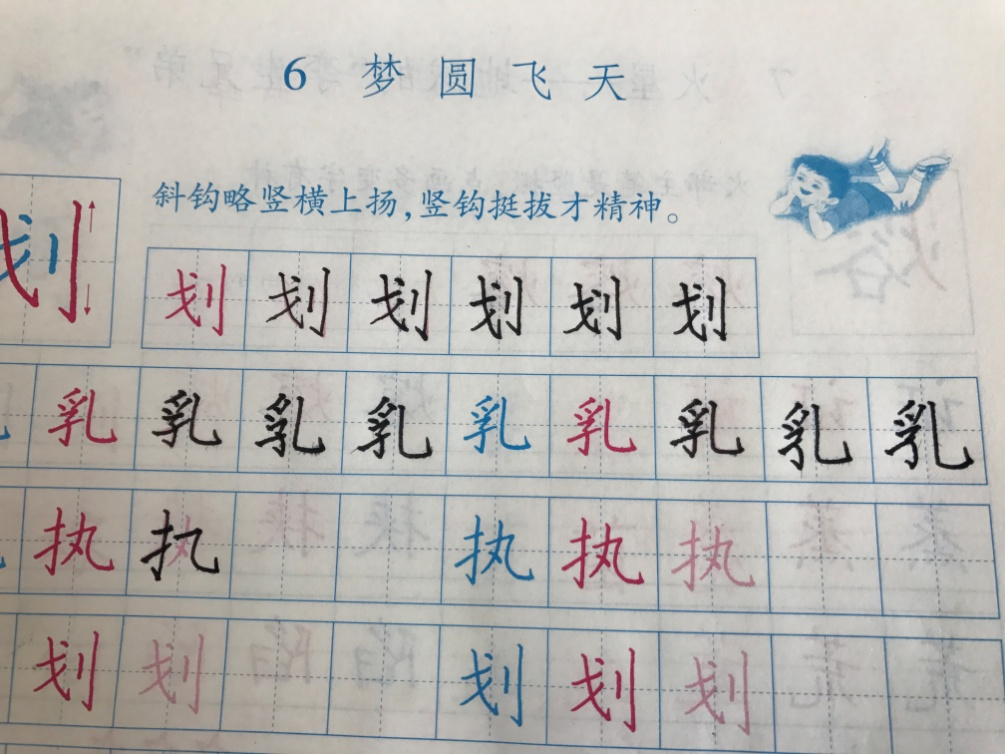 6 梦圆飞天
斜钩略竖横上扬,竖钩挺拔才精神。
划
划 划 划 划 划 划
乳 乳 乳 乳 乳 乳 乳 乳 乳
执 执 执 执 执
划 划 划 划 划